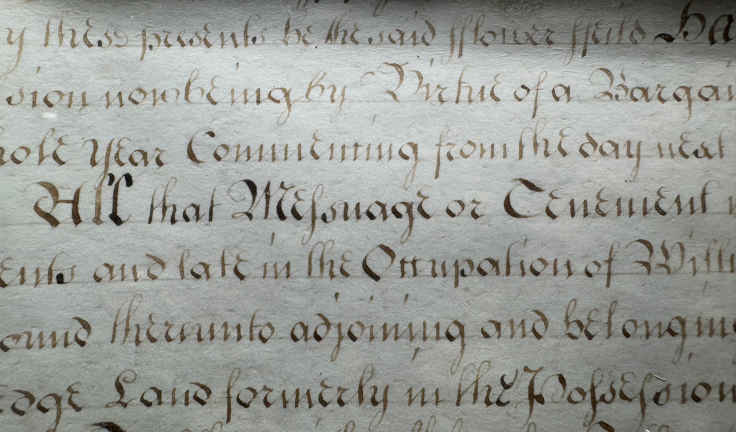 y these presents he the said fflower ffeild Ha
sion now being by Virtue of a Bargai
hole Year Commencing from the day next
All that Messuage or Tenement
ents and late in the Occupation of Willi
ound thereunto adjoining and belonging
edge Land formerly in the Possession